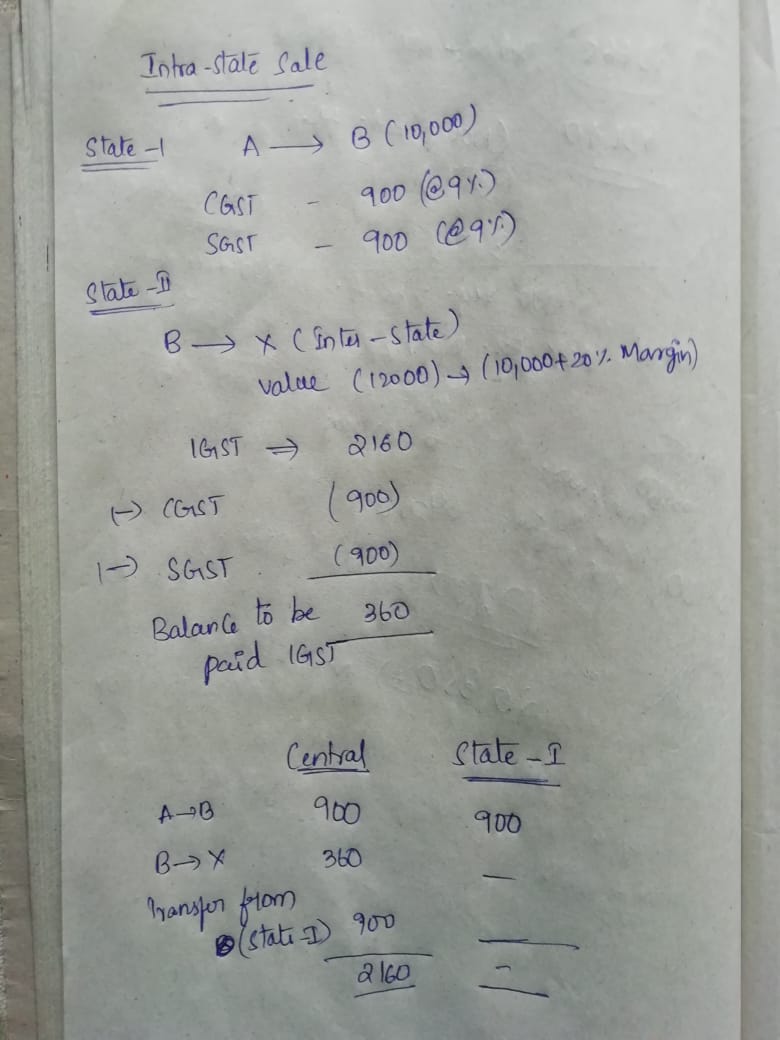 Intra-state Sale
State-I A → B (10,000)
CGST - 900 (@9%)
SGST - 900 (@9%)
State-II
B → X (Inter-state)
Value (12000) → (10,000+20% Margin)
IGST ⇒ 2160
(-) CGST (900)
(-) SGST (900)
Balance to be 360
paid IGST
Central State-I
A→B 900 900
B→X 360 —
Transfer from
(State-I) 900
2160 -